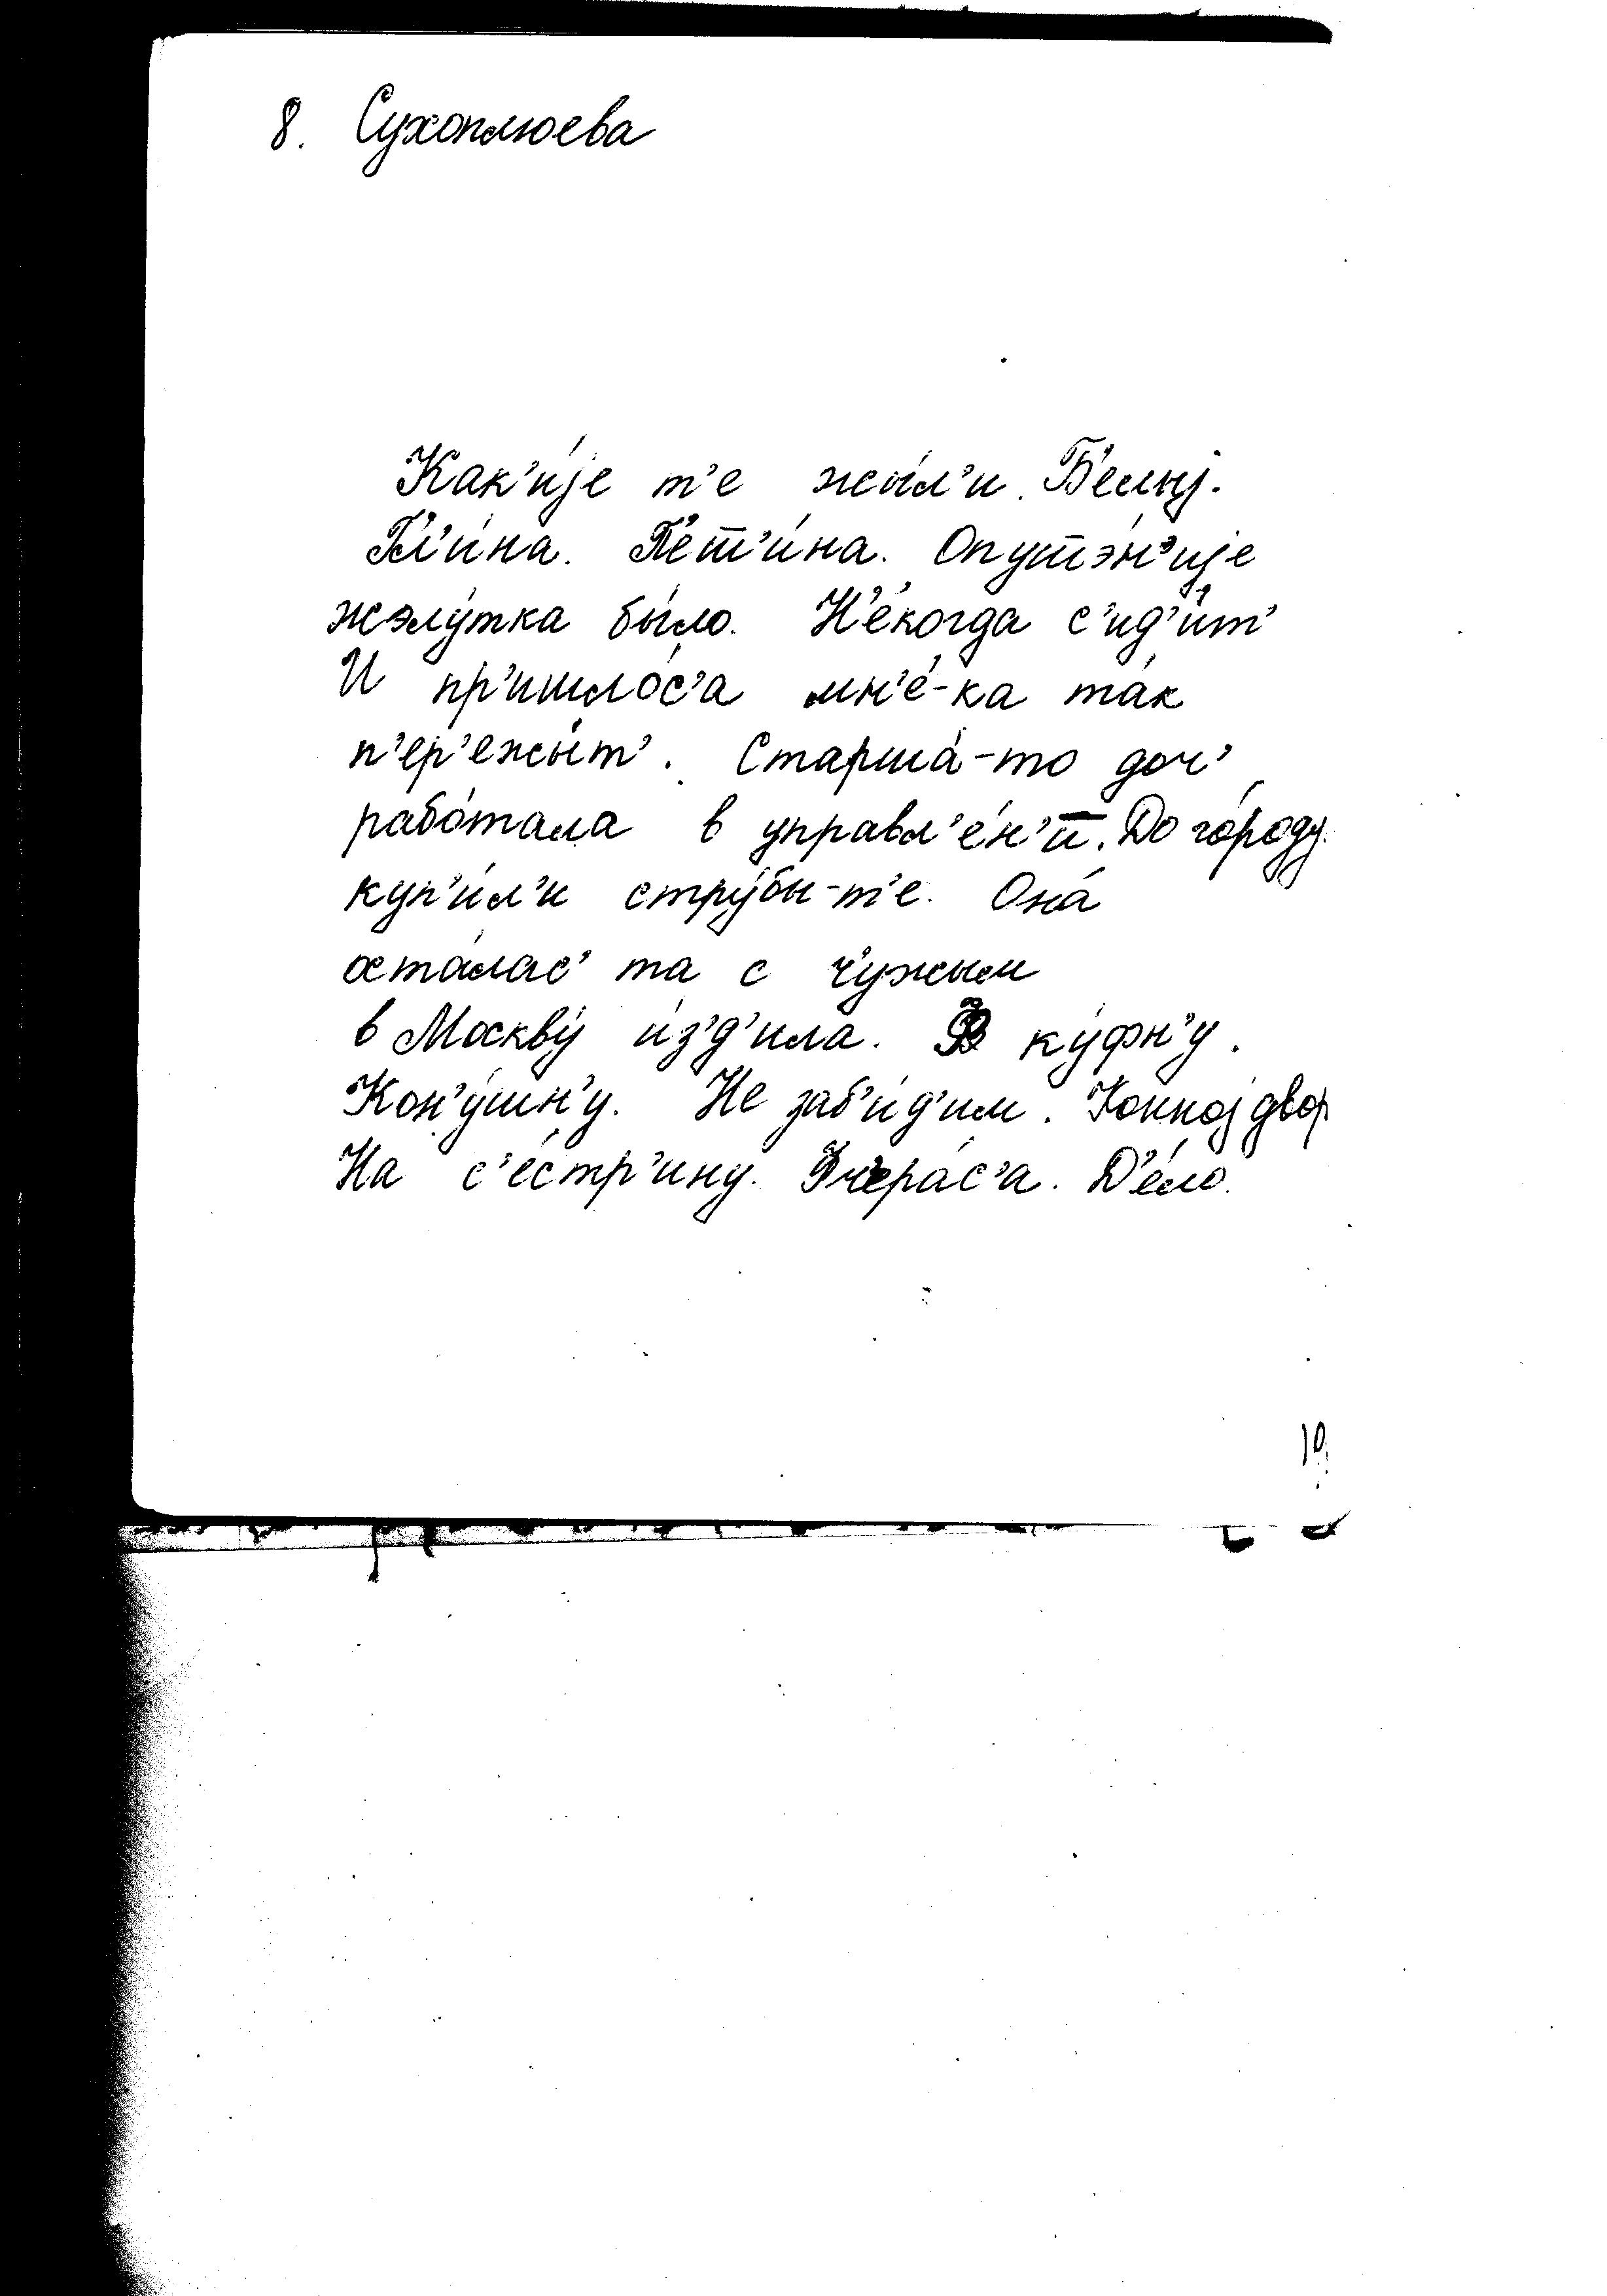 8. Сухоплюева
Как'и́је т'е жы́л'и. Б'е́лыј.
Гл'и́на. П'ет'и́на. Опушэ́н'ије
жэлу́тка бы́ло. Н'е́когда с'ид'и́т'
И пр'ишло́с'а мн'е́-ка та́к
п'ер'ежы́т'. Старша́-то доч'
рабо́тала в управл'е́н'и̅. До го́роду.
куп'и́л'и стру́бы-т'е. Она́
оста́лас' та с ч'ужы́м
в Москву́ и́з'д'ила. В ку́фн'у.
Кон'у́шн'у. Не заб'и́д'им. Ко́нној двор
На с'е́стр'ину. Вч'ера́с'а. Д'е́ло.
10